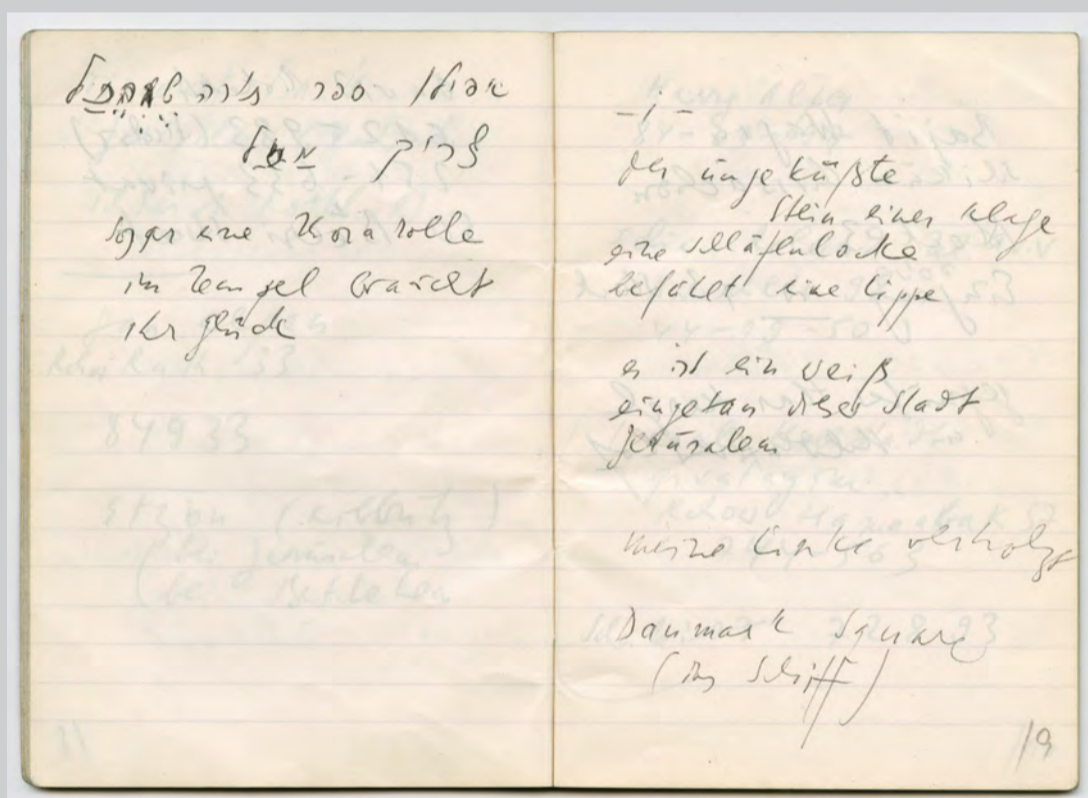 אפילו ספר תורה שבהיכל
צריך מזל
sogar eine Torarolle
im Tempel braucht
ihr Glück
– i –
der ungeküßte
Stein einer Klage
eine Schläfenlocke
befühlt eine Lippe
es ist ein
eingetan dieser Stadt
Jerusalem
meine Linke verholzt
Danmark Square
( Schiff)
19